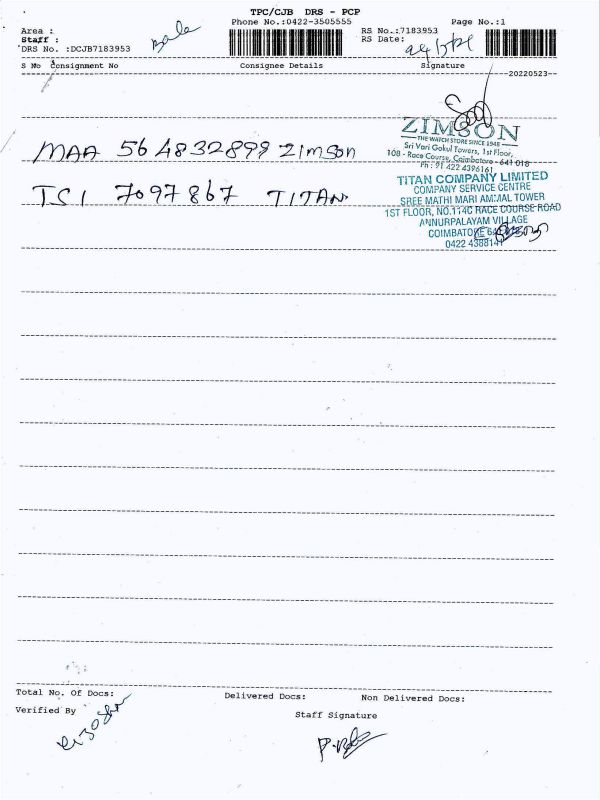 TPC/CJB DRS - PCP
Phone No.:0422-3505555
Page No.:1
Area :
Staff :
DRS No. :DCJB7183953
RS No.:7183953
RS Date:
S No Consignment No Consignee Details Signature
20220523
MAA 564832899 Zimson
ZIMSON
THE WATCH STORE SINCE 1948
Sri Vari Gokul Towers, 1st Floor,
108 - Race Course, Coimbatore - 641 018
Ph : 91 422 4396161
TSI 7097867 TITAN
TITAN COMPANY LIMITED
COMPANY SERVICE CENTRE
SREE MATHI MARI AMMAL TOWER
1ST FLOOR, NO.114C RACE COURSE ROAD
ANNURPALAYAM VILLAGE
COIMBATORE
0422 4388141
Total No. Of Docs: Delivered Docs: Non Delivered Docs:
Verified By
Staff Signature